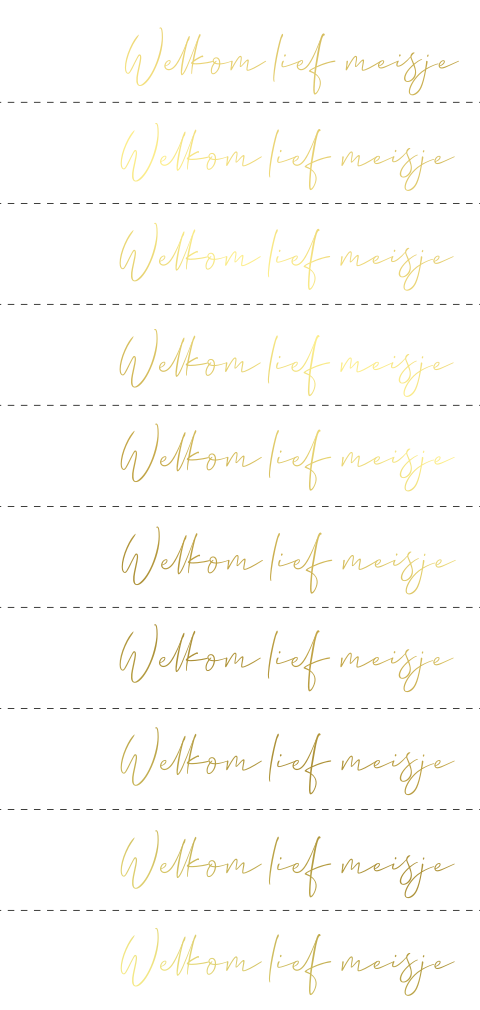 Welkom lief meisje
Welkom lief meisje
Welkom lief meisje
Welkom lief meisje
Welkom lief meisje
Welkom lief meisje
Welkom lief meisje
Welkom lief meisje
Welkom lief meisje
Welkom lief meisje